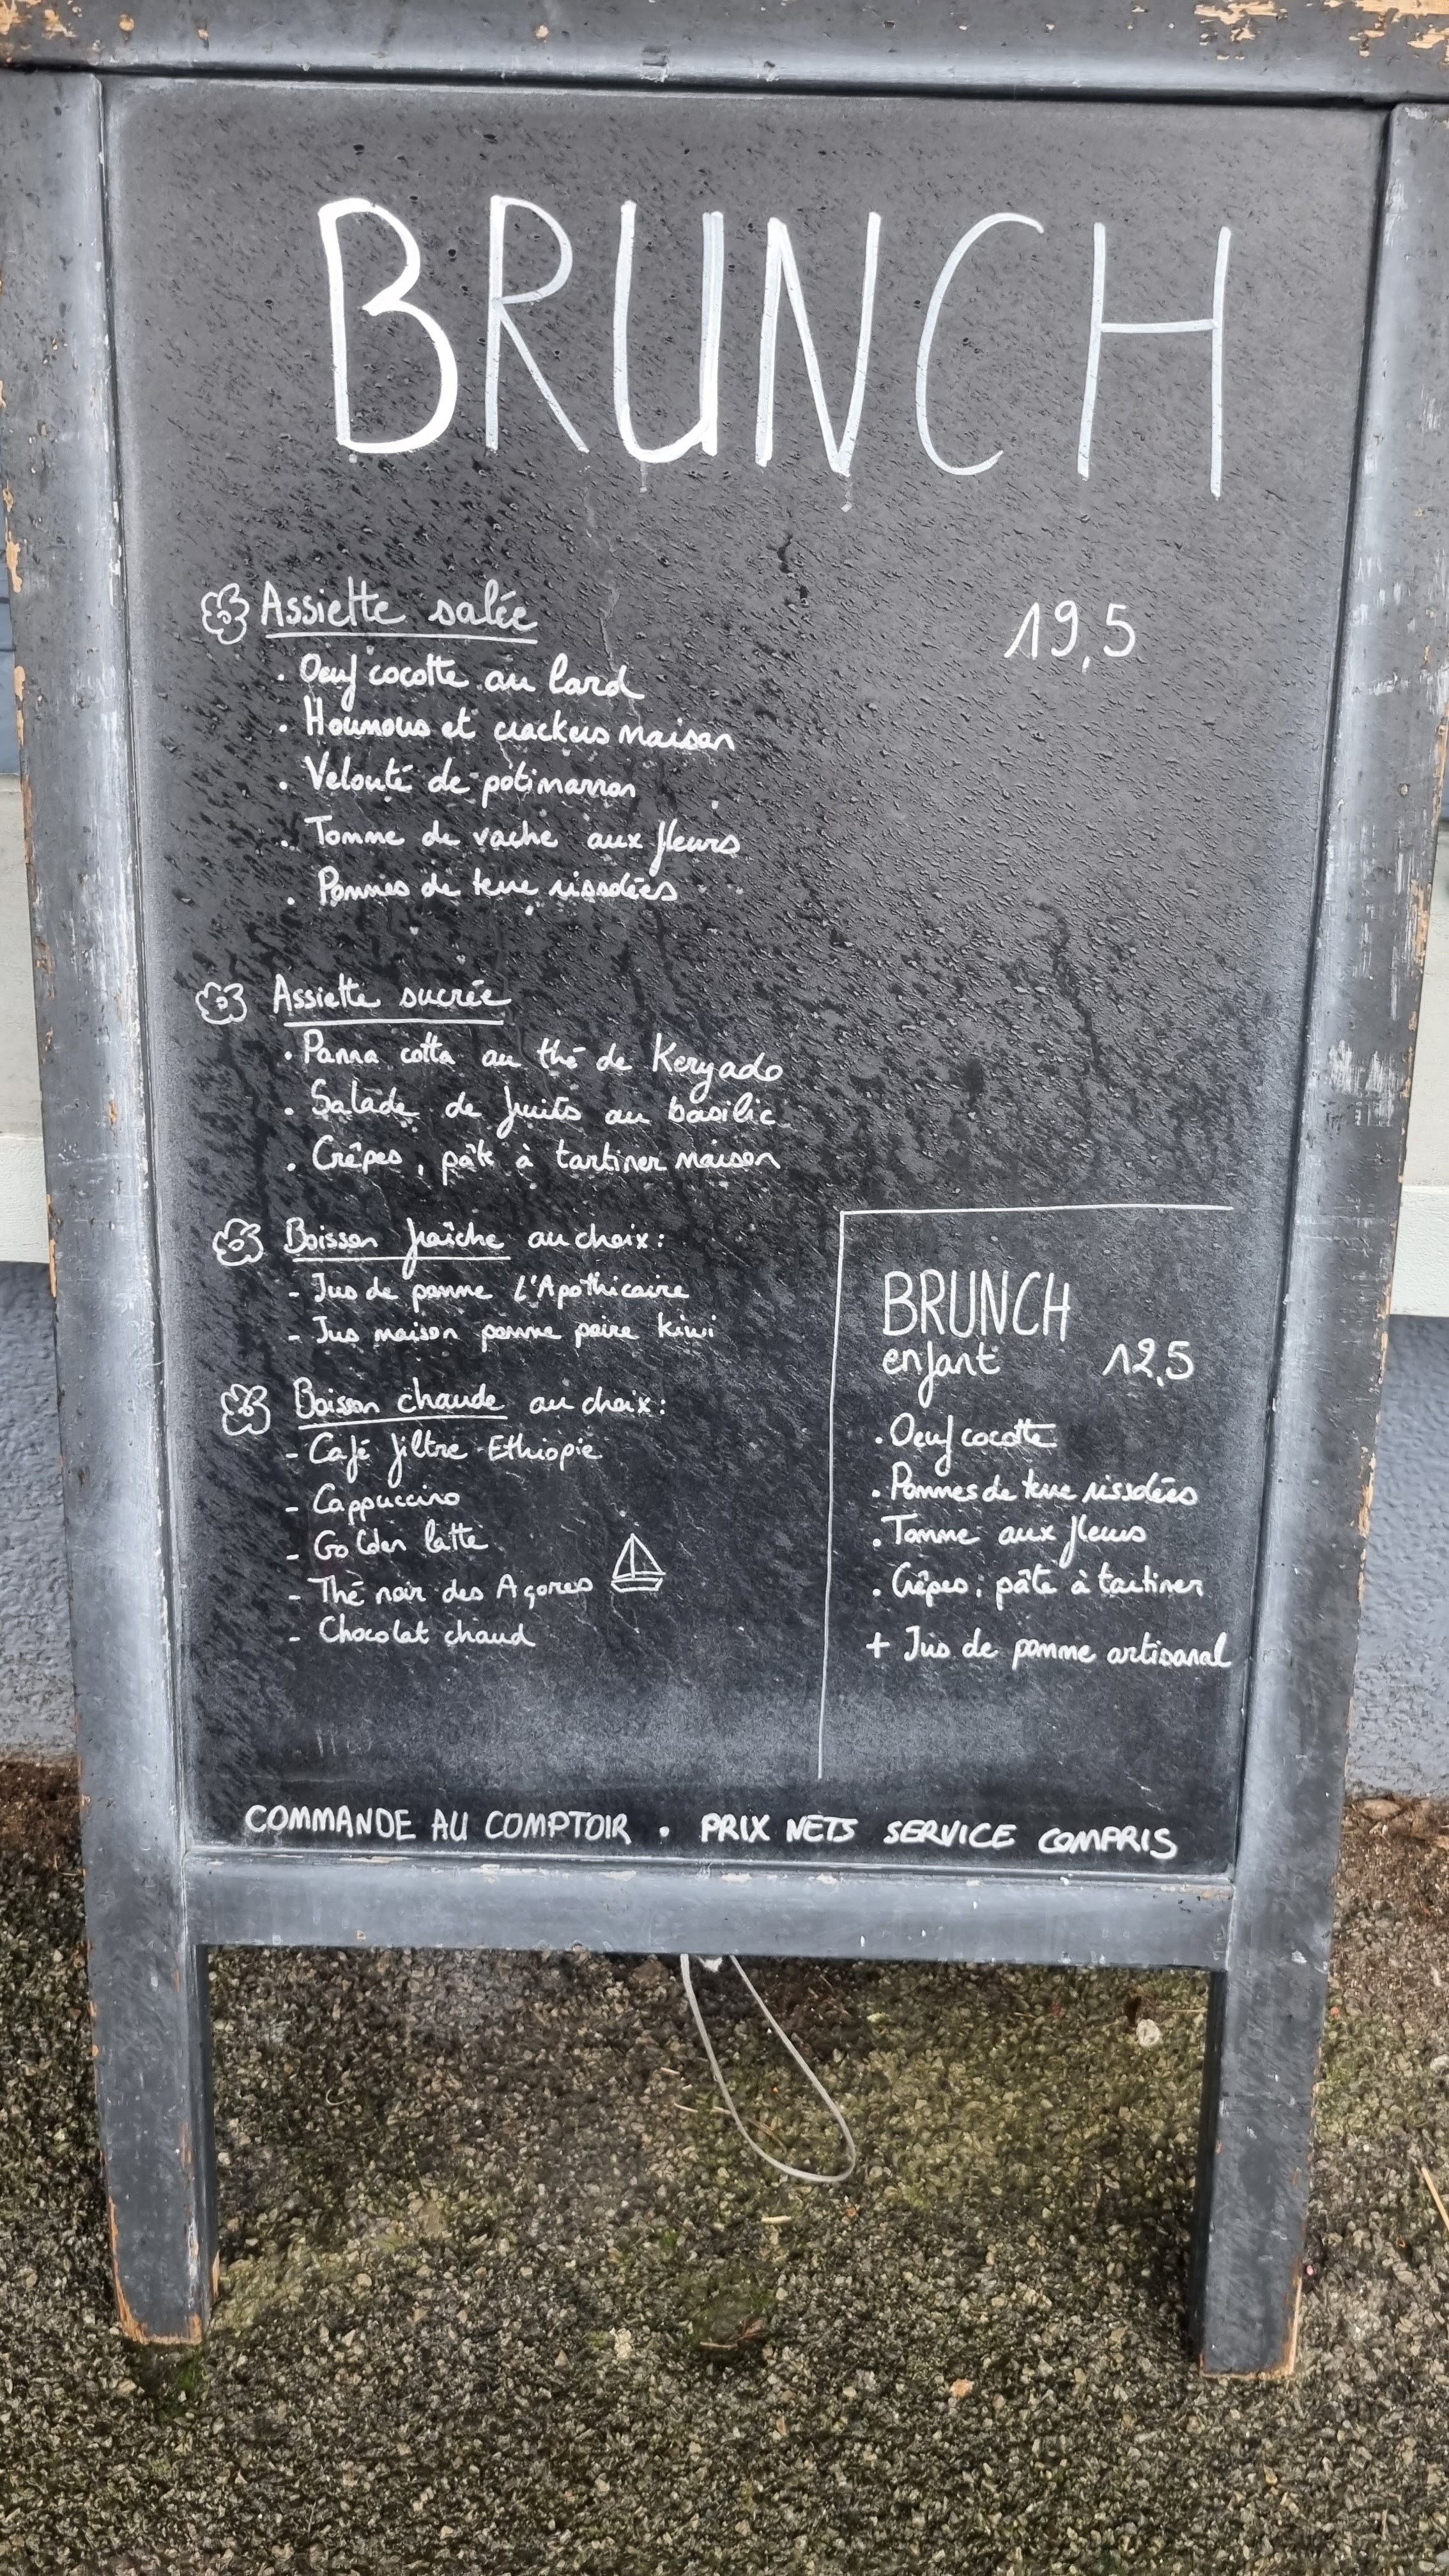 BRUNCH
Assiette salée 19,5
. Oeuf cocotte au lard
. Houmous et crackers maison
. Velouté de potimarron
. Tomme de vache aux fleurs
. Pommes de terre rissolées
Assiette sucrée
. Panna cotta au thé de Keryado
. Salade de fruits au basilic
. Crêpes, pâte à tartiner maison
Boisson fraîche au choix:
- Jus de pomme l'Apothicaire
- Jus maison pomme poire kiwi
Boisson chaude au choix:
- Café filtre Ethiopie
- Cappuccino
- Golden latte
- Thé noir des Açores
- Chocolat chaud
BRUNCH
enfant 12,5
. Oeuf cocotte
. Pommes de terre rissolées
. Tomme aux fleurs
. Crêpes; pâte à tartiner
+ Jus de pomme artisanal
COMMANDE AU COMPTOIR . PRIX NETS SERVICE COMPRIS